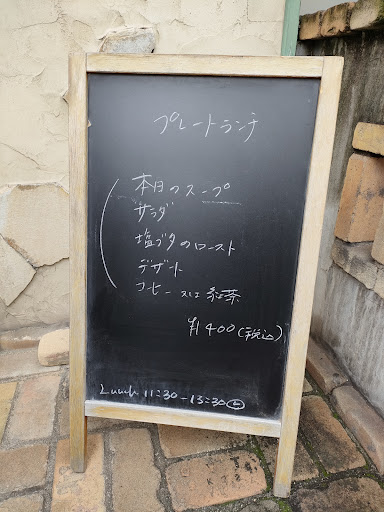 プレートランチ
本日のスープ
サラダ
塩ブタのロースト
デザート
コーヒー 又は 紅茶
¥1400(税込)
Lunch 11:30-13:30